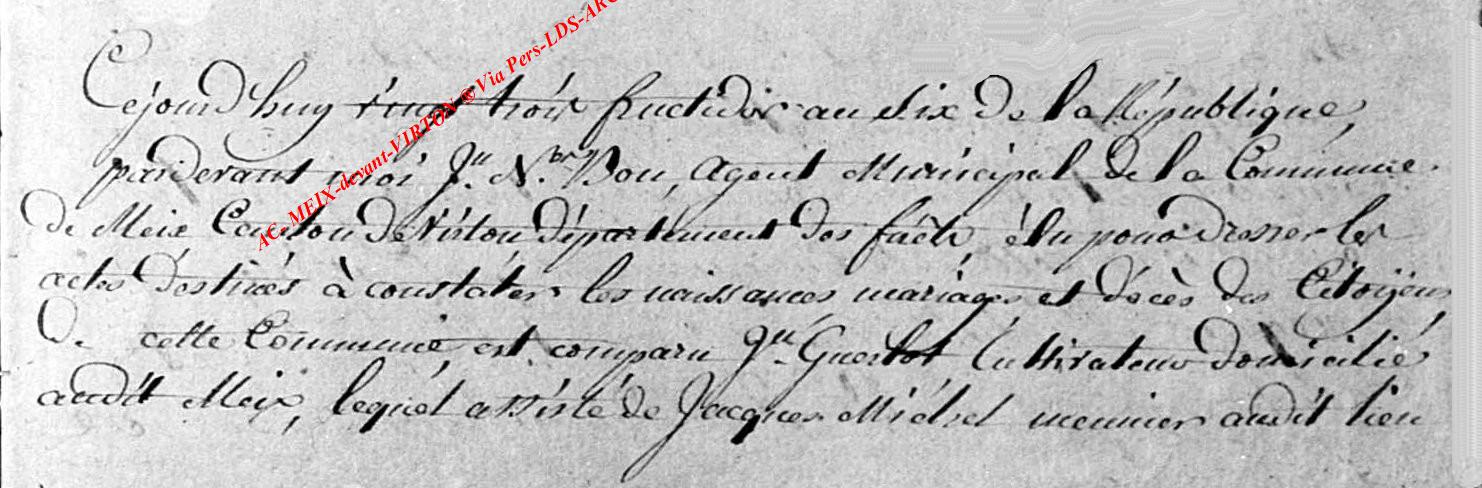 AC-MEIX-devant-VIRTON ® Via Pers-LDS-ARC
Cejourd'huy vingt trois fructidor an Six De la République,
pardevant moi Jn. Nas. Bon, agent Municipal de la Commune
De Meix Canton De Virton département des forêts élu pour Dresser les
actes Destinés à constater les naissances mariages et décès des Citoÿens
De cette Commune, est comparu Jn. Guerlot Cultivateur Domicilié
audit Meix, lequel assisté de Jacques Michel meunier audit lieu